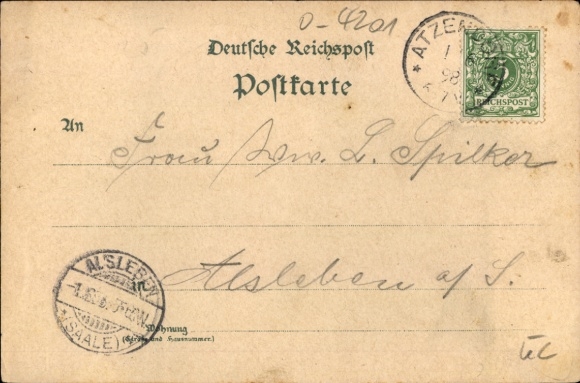 0-4201
Deutsche Reichspost
Postkarte
ATZEN
98
5
REICHSPOST
An
Frau Ww. L. Spilker
in
Alsleben a/S.
ALSLEBEN
*(SAALE)*
Wohnung
(Straße und Hausnummer.)